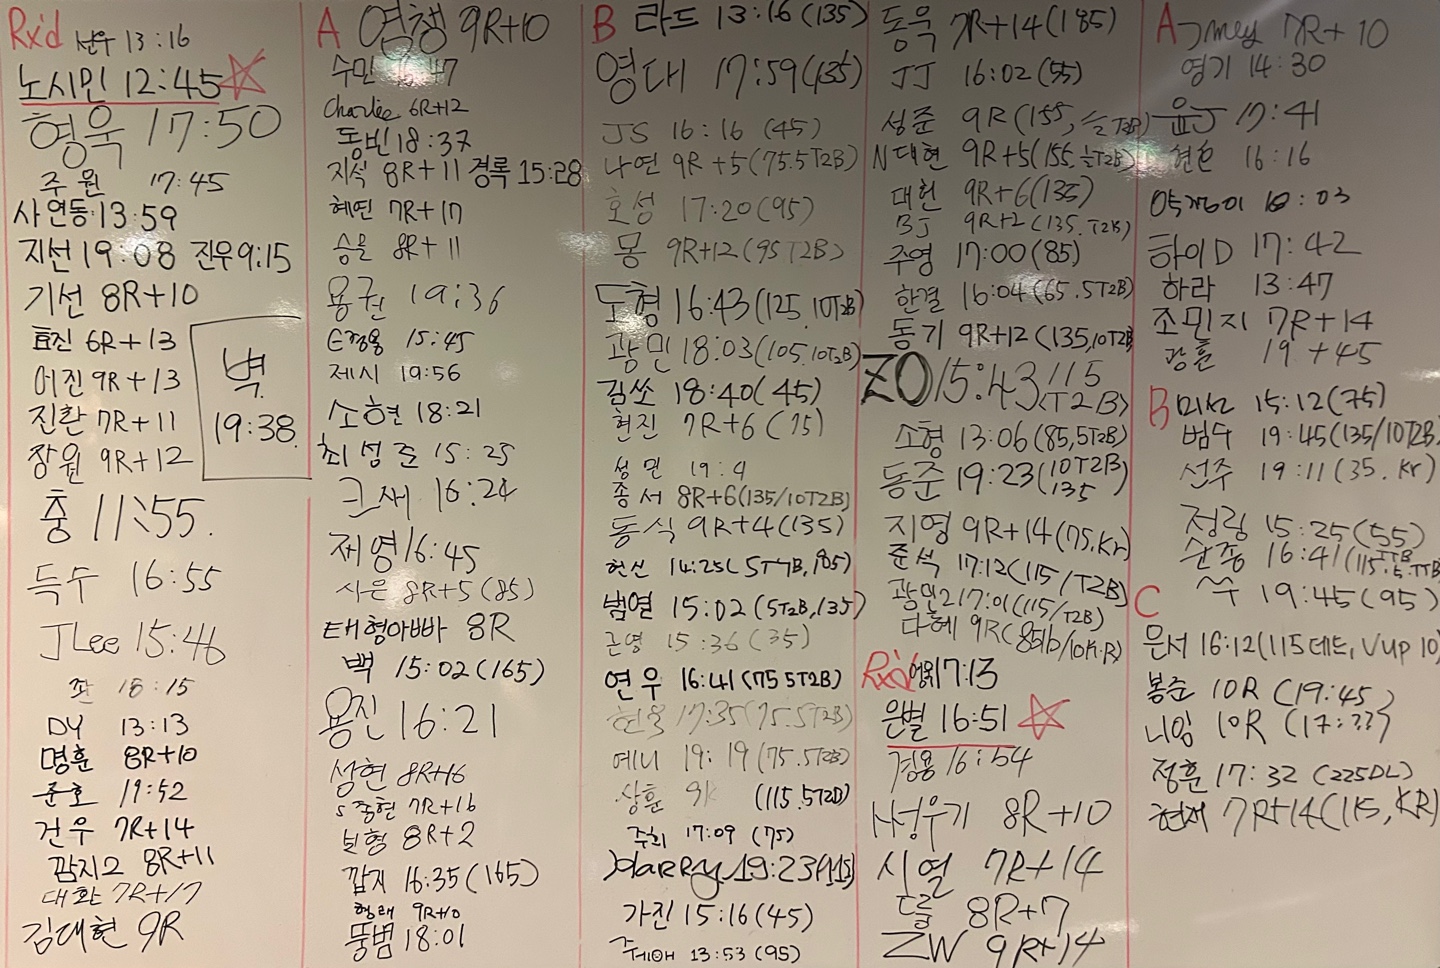 Rx'd 선우 13:16
노시민 12:45
형욱 17:50
주원 17:45
사연동 13:59
지선 19:08 진우 9:15
기선 8R+10
효진 6R+13
어진 9R+13
진환 7R+11
장원 9R+12
벽
19:38
충 11:55
득수 16:55
JLee 15:46
18:15
DY 13:13
명훈 8R+10
준호 19:52
건우 7R+14
깜지2 8R+11
대환 7R+17
김대현 9R
A 연챙 9R+10
수민 16:47
Charlie 6R+12
동빈 18:37
지석 8R+11 경록 15:28
혜연 7R+17
승은 8R+11
용권 19:36
E정용 15:45
제시 19:56
소현 18:21
최성준 15:25
크새 16:24
제영 16:45
사은 8R+5(85)
태형아빠 8R
백 15:02(165)
용진 16:21
성현 8R+16
S중현 7R+16
보형 8R+2
깜지 16:35(165)
형래 9R+10
뚱범 18:01
B 라드 13:16(135)
영대 17:59(135)
JS 16:16 (45)
나연 9R+5(75.5T2B)
호성 17:20(95)
몽 9R+12(95 T2B)
도형 16:43(125.10T2B)
광민 18:03(105.10T2B)
김쏘 18:40(45)
현진 7R+6(75)
성민 19:4
종서 8R+6(135/10T2B)
동식 9R+4(135)
헌신 14:25(5TTB,185)
범열 15:02(5T2B,135)
근영 15:36(35)
연우 16:41(75 5T2B)
현욱 17:35(75.5T2B)
예니 19:19(75.5T2B)
상훈 9R (115.5T2B)
주희 17:09 (75)
Harry 19:23(115)
가진 15:16(45)
13:53 (95)
동욱 7R+14(185)
JJ 16:02(55)
성준 9R(155, T2B)
N대현 9R+5(155.½T2B)
대헌 9R+6(135)
BJ 9R+2(135.T2B)
주영 17:00(85)
한결 16:04(65.5T2B)
동기 9R+12(135,10T2B)
ZO 15:43/115
(T2B)
소형 13:06(85,5T2B)
동준 19:23(10T2B)
135
지영 9R+14(75.Kr)
준석 17:12(115/T2B)
광민2 17:01(115/T2B)
다혜 9R(85lb/10K.R)
Rx'd 17:13
은별 16:51
경용 16:54
H성우기 8R+10
시열 7R+14
8R+7
ZW 9R+14
A Jmey 7R+10
영기 14:30
윤J 17:41
16:16
18:03
하이D 17:42
하라 13:47
조민지 7R+14
광훈 19+45
B 미선 15:12(75)
범수 19:45(135/10T2B)
선주 19:11(35.Kr)
정링 15:25(55)
순종 16:41(115.5.TTB)
19:45(95)
C
문서 16:12(115데드, Vup 10)
봉준 10R (19:45)
니임 10R (17:??)
정훈 17:32 (225DL)
현재 7R+14(115,KR)